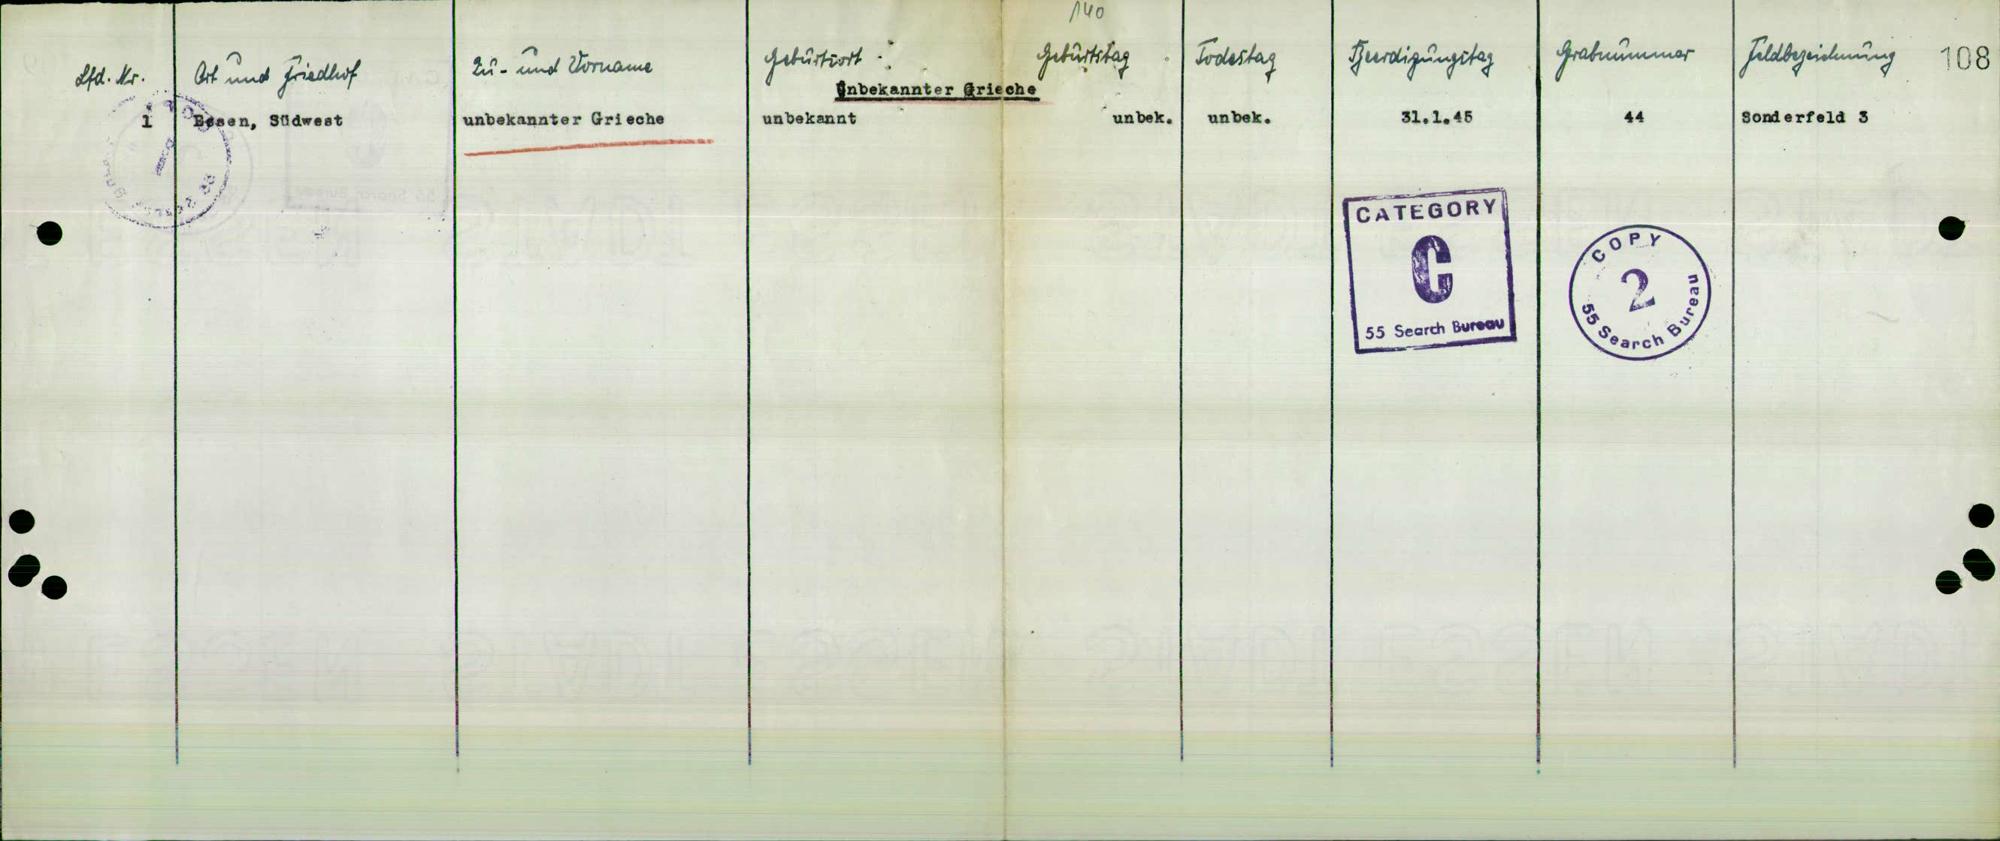 140
Lfd. Nr. Ort und Friedhof Zu- und Vorname Geburtsort Geburtstag Todestag Beerdigungstag Grabnummer Feldbezeichnung 108
Unbekannter Grieche
1 Essen, Südwest unbekannter Grieche unbekannt unbek. unbek. 31.1.45 44 Sonderfeld 3
CATEGORY
C
55 Search Bureau
COPY
2
55 Search Bureau